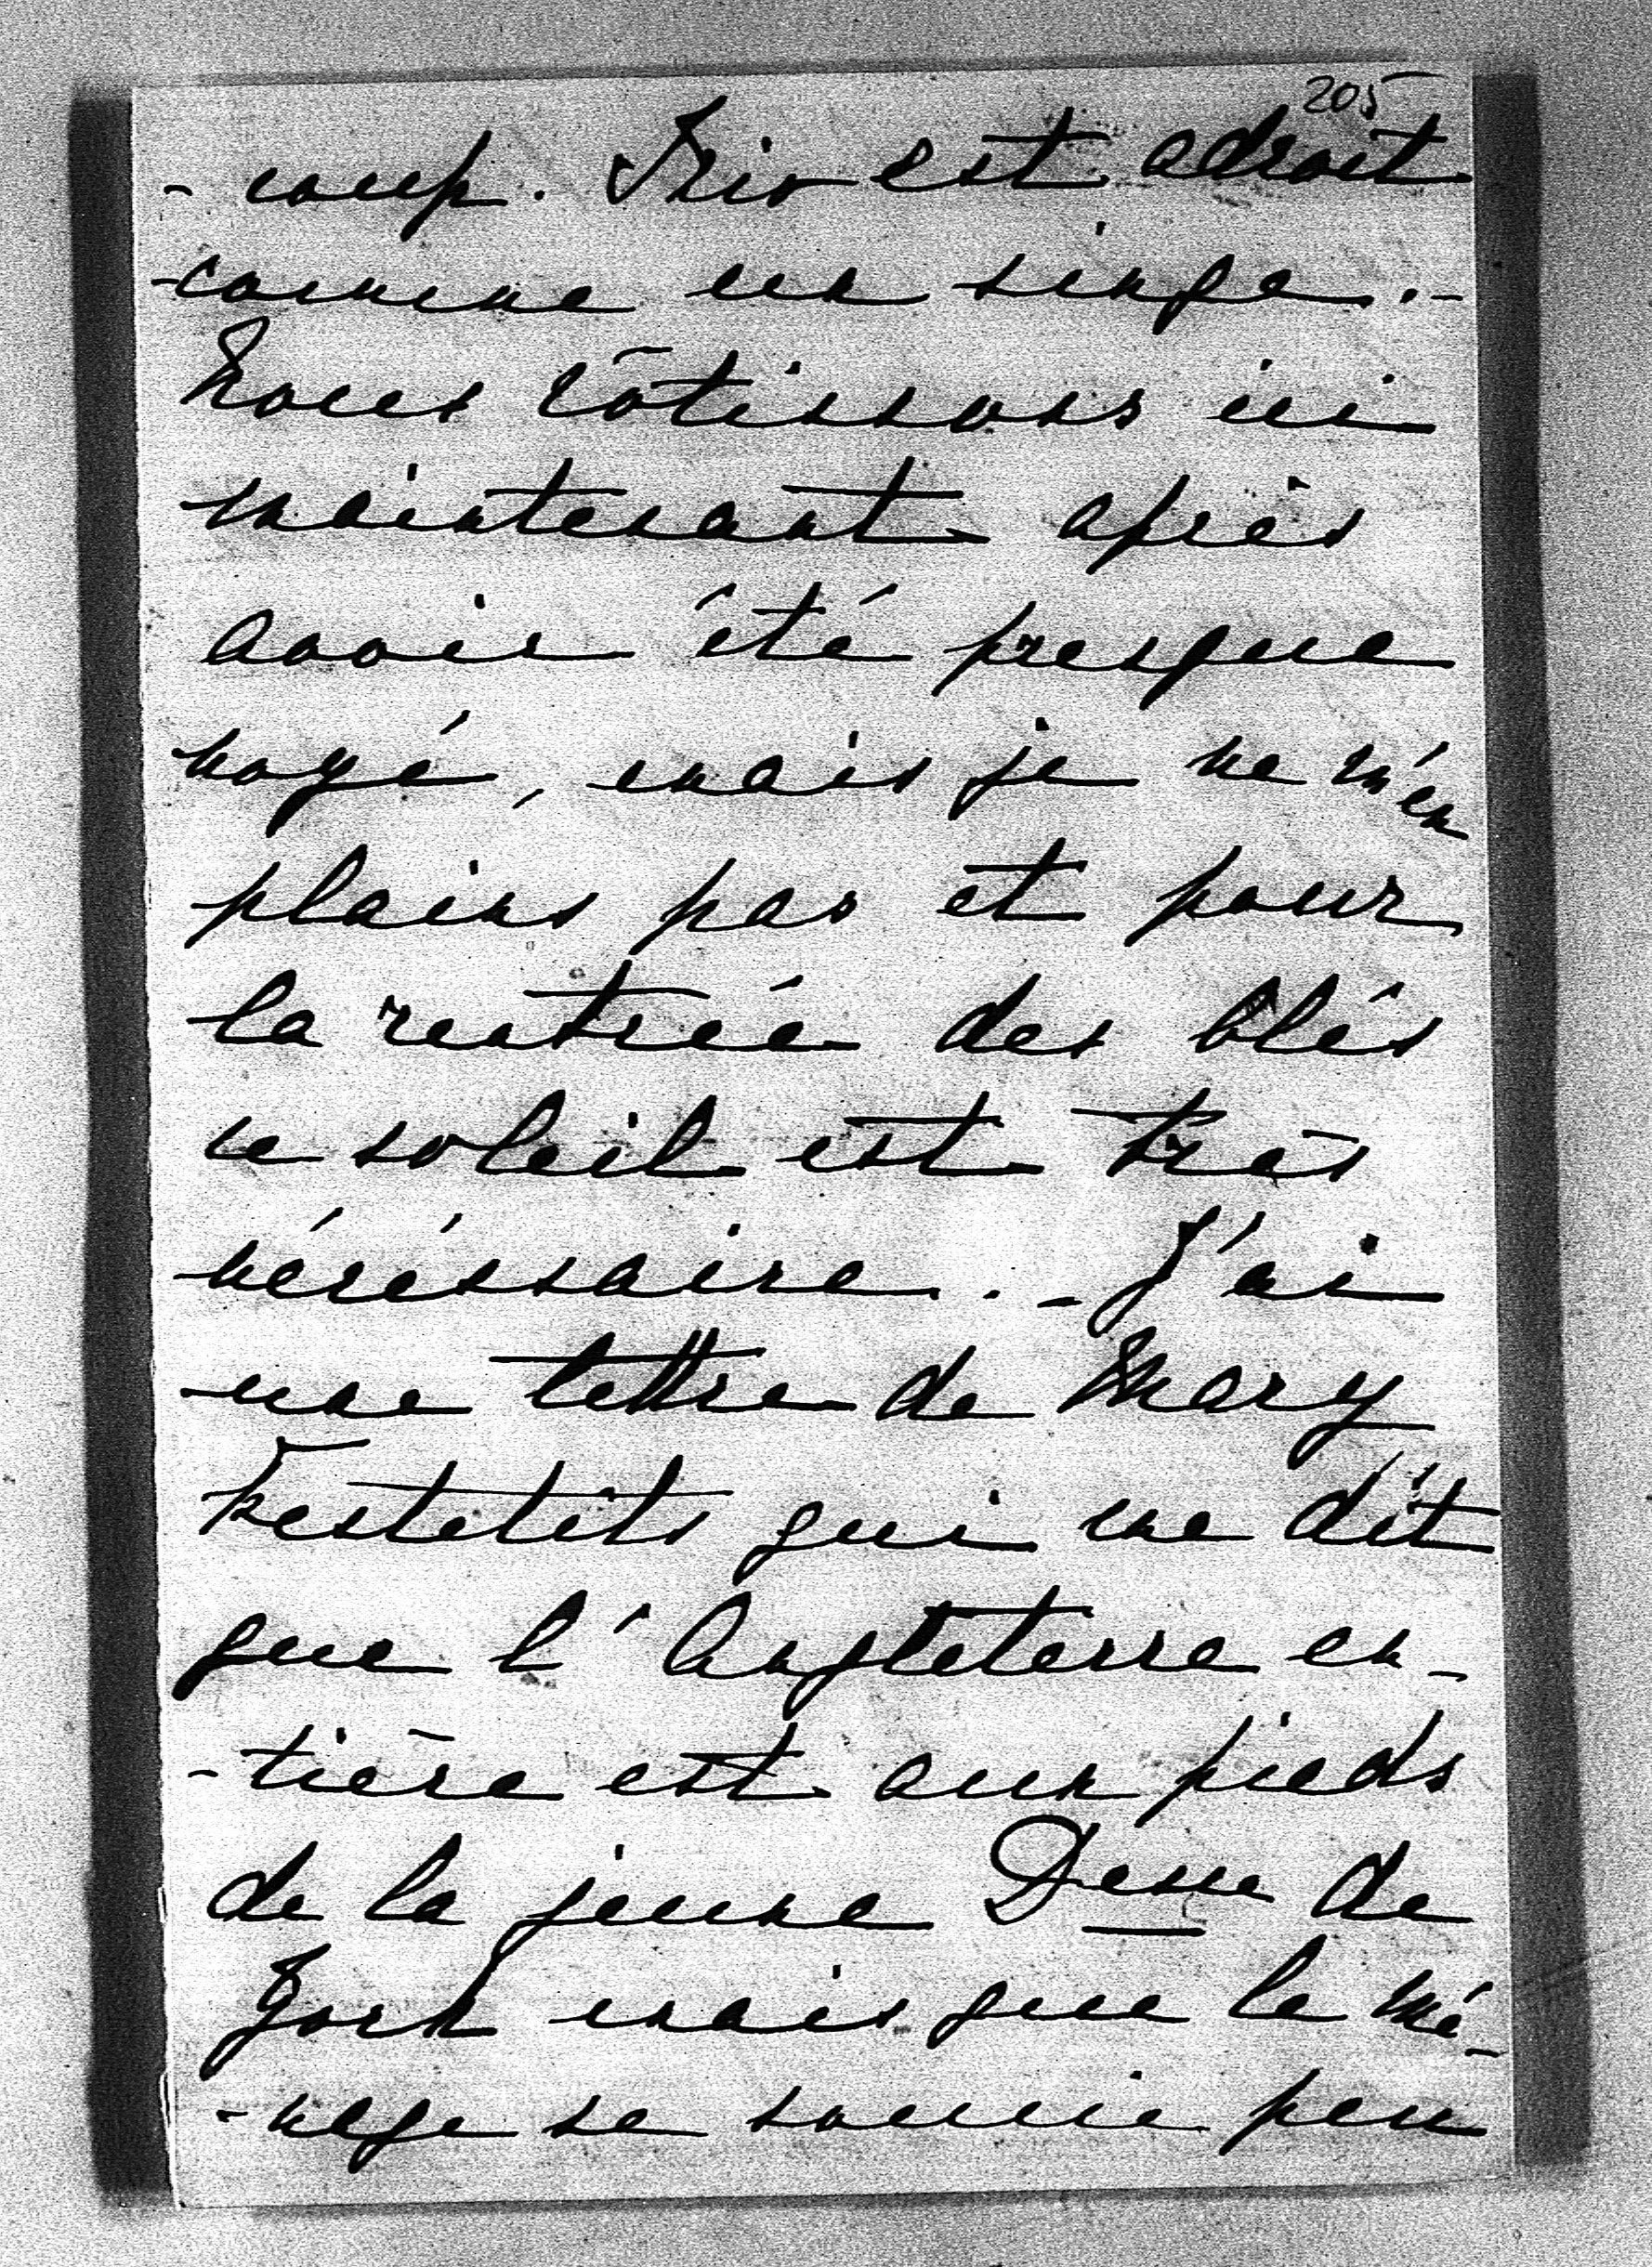 205
- coup. Trio est adroit
comme un singe. -
Nous rôtissons ici
maintenant après
avoir été presque
noyé, mais je ne m'en
plains pas et pour
la rentrée des blés
ce soleil est très
nécéssaire. - J'ai
une lettre de Mary
Festetits qui me dit
que l'Angleterre en-
-tière est aux pieds
de la jeune Desse de
York mais que le mé-
-nage se soucie peu